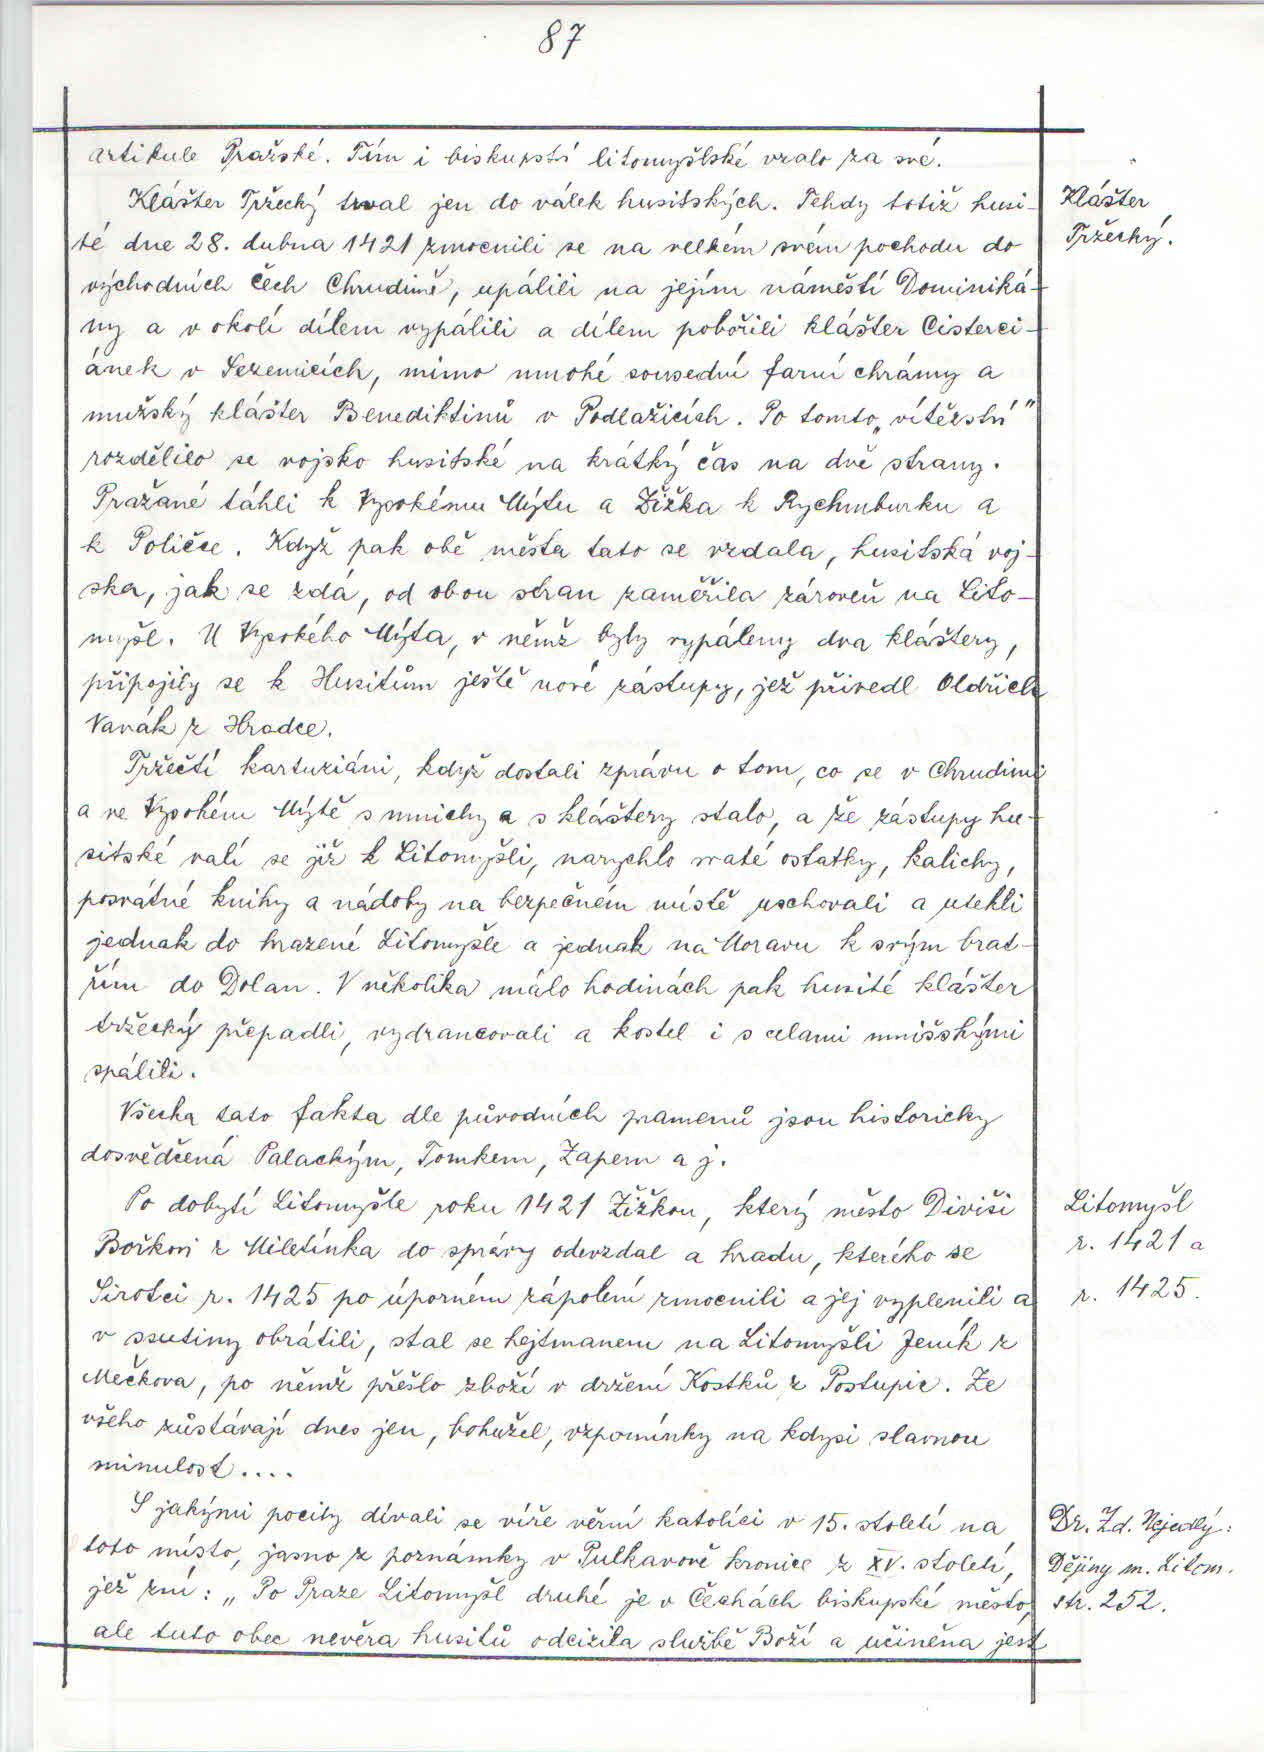 87
artikule Pražské. Tím i biskupství litomyšlské vzalo za své.
Klášter Tržecký trval jen do válek husitských. Tehdy totiž husi-
Klášter
té dne 28. dubna 1421 zmocnili se na velkém svém pochodu do
Tržecký.
východních Čech Chrudimě, upálili na jejím náměstí Dominiká-
ny a v okolí dílem vypálili a dílem pobořili klášter Cisterci-
ánek v Sezemicích, mimo mnohé sousední farní chrámy a
mužský klášter Benediktinů v Podlažicích. Po tomto „vítězství"
rozdělilo se vojsko husitské na krátký čas na dvě strany.
Pražané táhli k Vysokému Mýtu a Žižka k Rychmburku a
k Poličce. Když pak obě města tato se vzdala, husitská voj-
ska, jak se zdá, od obou stran zaměřila zároveň na Lito-
myšl. U Vysokého Mýta, v němž byly vypáleny dva kláštery,
připojily se k Husitům ještě nové zástupy, jež přivedl Oldřich
Vavák z Hradce.
Tržečtí kartuziáni, když dostali zprávu o tom, co se v Chrudimi
a ve Vysokém Mýtě s mnichy a s kláštery stalo, a že zástupy hu-
sitské valí se již k Litomyšli, narychlo svaté ostatky, kalichy,
posvátné knihy a nádoby na bezpečném místě uschovali a utekli
jednak do hrazené Litomyšle a jednak na Moravu k svým brat-
řím do Dolan. V několika málo hodinách pak husité klášter
tržecký přepadli, vydrancovali a kostel i s celami mnišskými
spálili.
Všecka tato fakta dle původních pramenů jsou historicky
dosvědčená Palackým, Tomkem, Zapem a j.
Po dobytí Litomyšle roku 1421 Žižkou, který město Diviši
Litomyšl
Bořkovi z Miletínka do správy odevzdal a hradu, kterého se
r. 1421 a
Sirotci r. 1425 po úporném zápolení zmocnili a jej vyplenili a
r. 1425.
v ssutiny obrátili, stal se hejtmanem na Litomyšli Jeník z
Mečkova, po němž přešlo zboží v držení Kostků z Postupic. Ze
všeho zůstávají dnes jen, bohužel, vzpomínky na kdysi slavnou
minulost....
S jakými pocity dívali se víře věrní katolíci v 15. století na
Dr. Zd. Nejedlý:
toto místo, jasno z poznámky v Pulkavově kronice z XV. století,
Dějiny m. Litom.
jež zní: „Po Praze Litomyšl druhé je v Čechách biskupské město,
str. 252.
ale tuto obec nevěra husitů odcizila službě Boží a učiněna jest